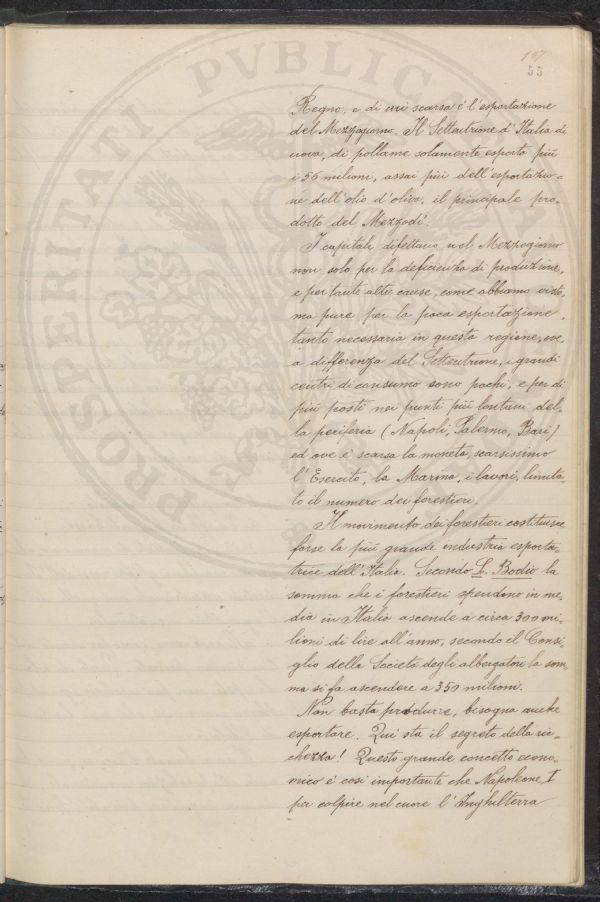 107
55
POSTERITATI PVBLICA
Regno, e di cui scarsa è l'esportazione
del Mezzogiorno. Il Settentrione d'Italia di
uova, di pollame solamente esporta più
i 56 milioni, assai più dell'esportazio-
ne dell'olio d'oliva, il principale pro-
dotto del Mezzodì.
I capitali difettano nel Mezzogiorno
non solo per la deficienza di produzione,
e per tante altre cause, come abbiamo visto,
ma pure per la poca esportazione,
tanto necessaria in questa regione, ove,
a differenza del Settentrione, i grandi
centri di consumo sono pochi, e per di
più posti nei punti più lontani del-
la periferia (Napoli, Palermo, Bari)
ed ove è scarsa la moneta, scarsissimo
l'Esercito, la Marina, i lavori, limita-
to il numero dei forestieri.
Il movimento dei forestieri costituisce
forse la più grande industria esporta-
trice dell'Italia. Secondo L. Bodio la
somma che i forestieri spendono in me-
dia in Italia ascende a circa 300 mi-
lioni di lire all'anno, secondo il Consi-
glio della Società degli albergatori la som-
ma si fa ascendere a 350 milioni.
Non basta produrre, bisogna anche
esportare. Qui sta il segreto della ric-
chezza! Questo grande concetto econo-
mico è così importante che Napoleone I
per colpire nel cuore l'Inghilterra